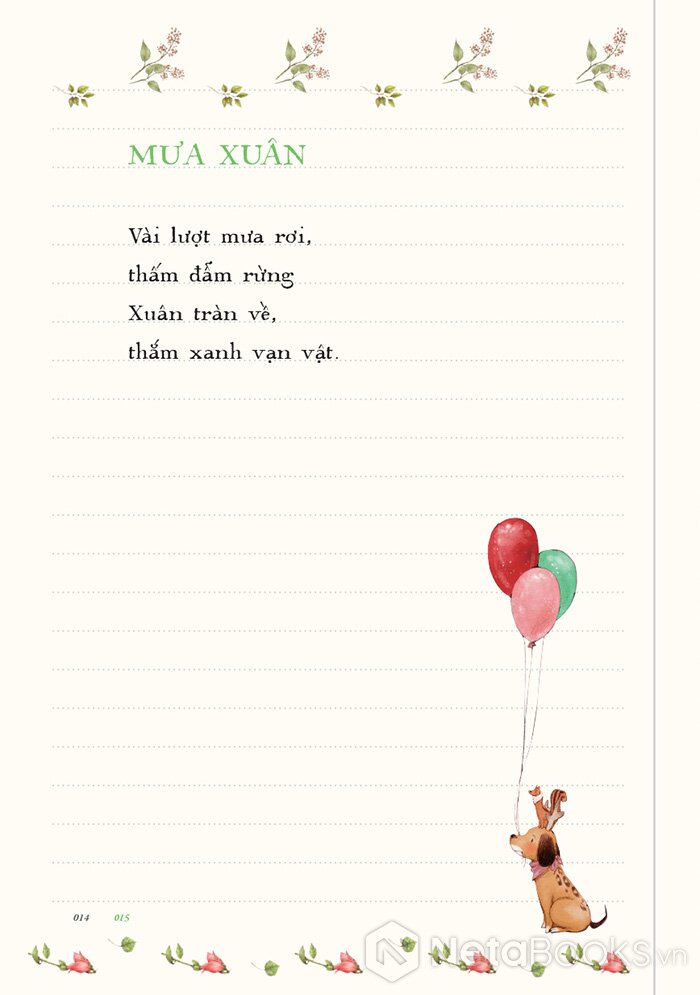 MƯA XUÂN
Vài lượt mưa rơi,
thấm đẫm rừng
Xuân tràn về,
thắm xanh vạn vật.
014 015
NetaBooks.vn